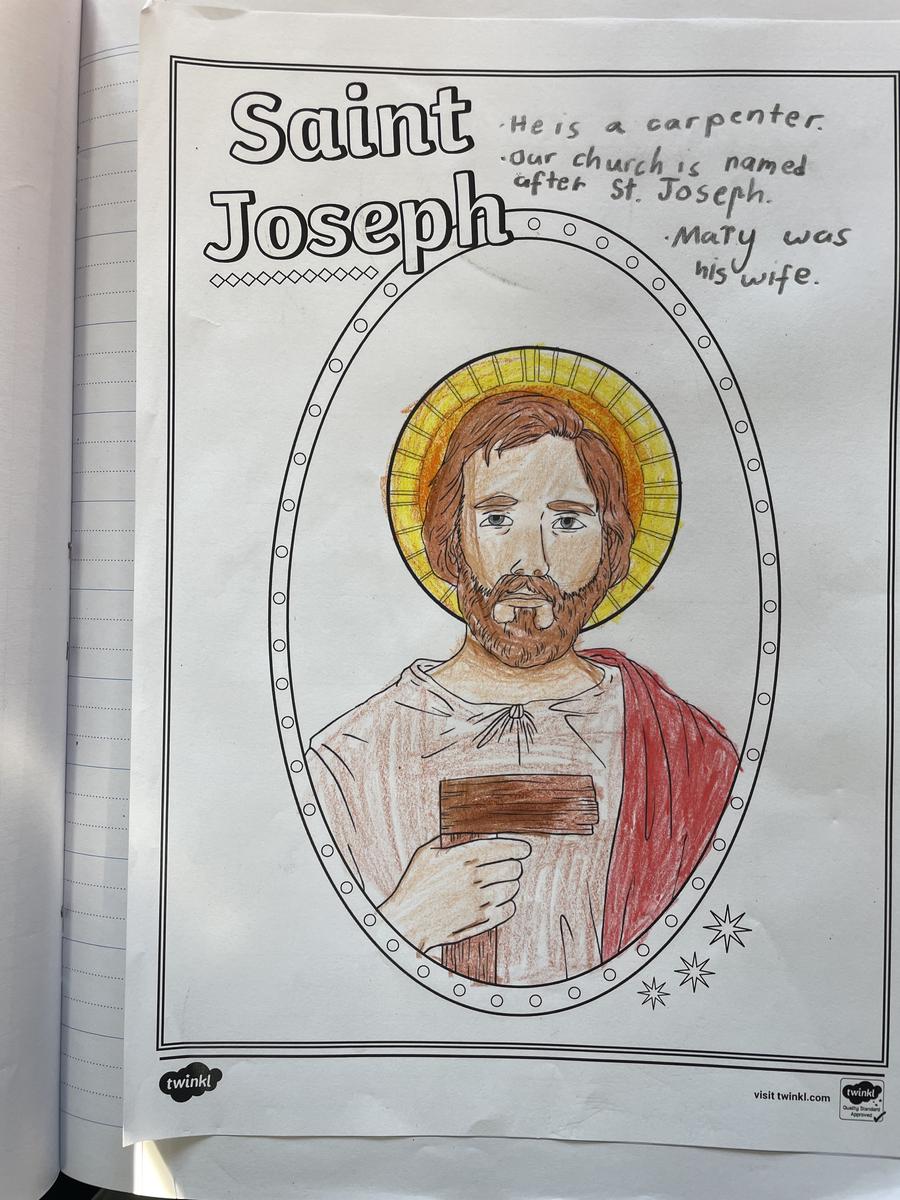 Saint
Joseph
·He is a carpenter.
·our church is named
after St. Joseph.
·Mary was
his wife.
twinkl
visit twinkl.com
twinkl
Quality Standard
Approved